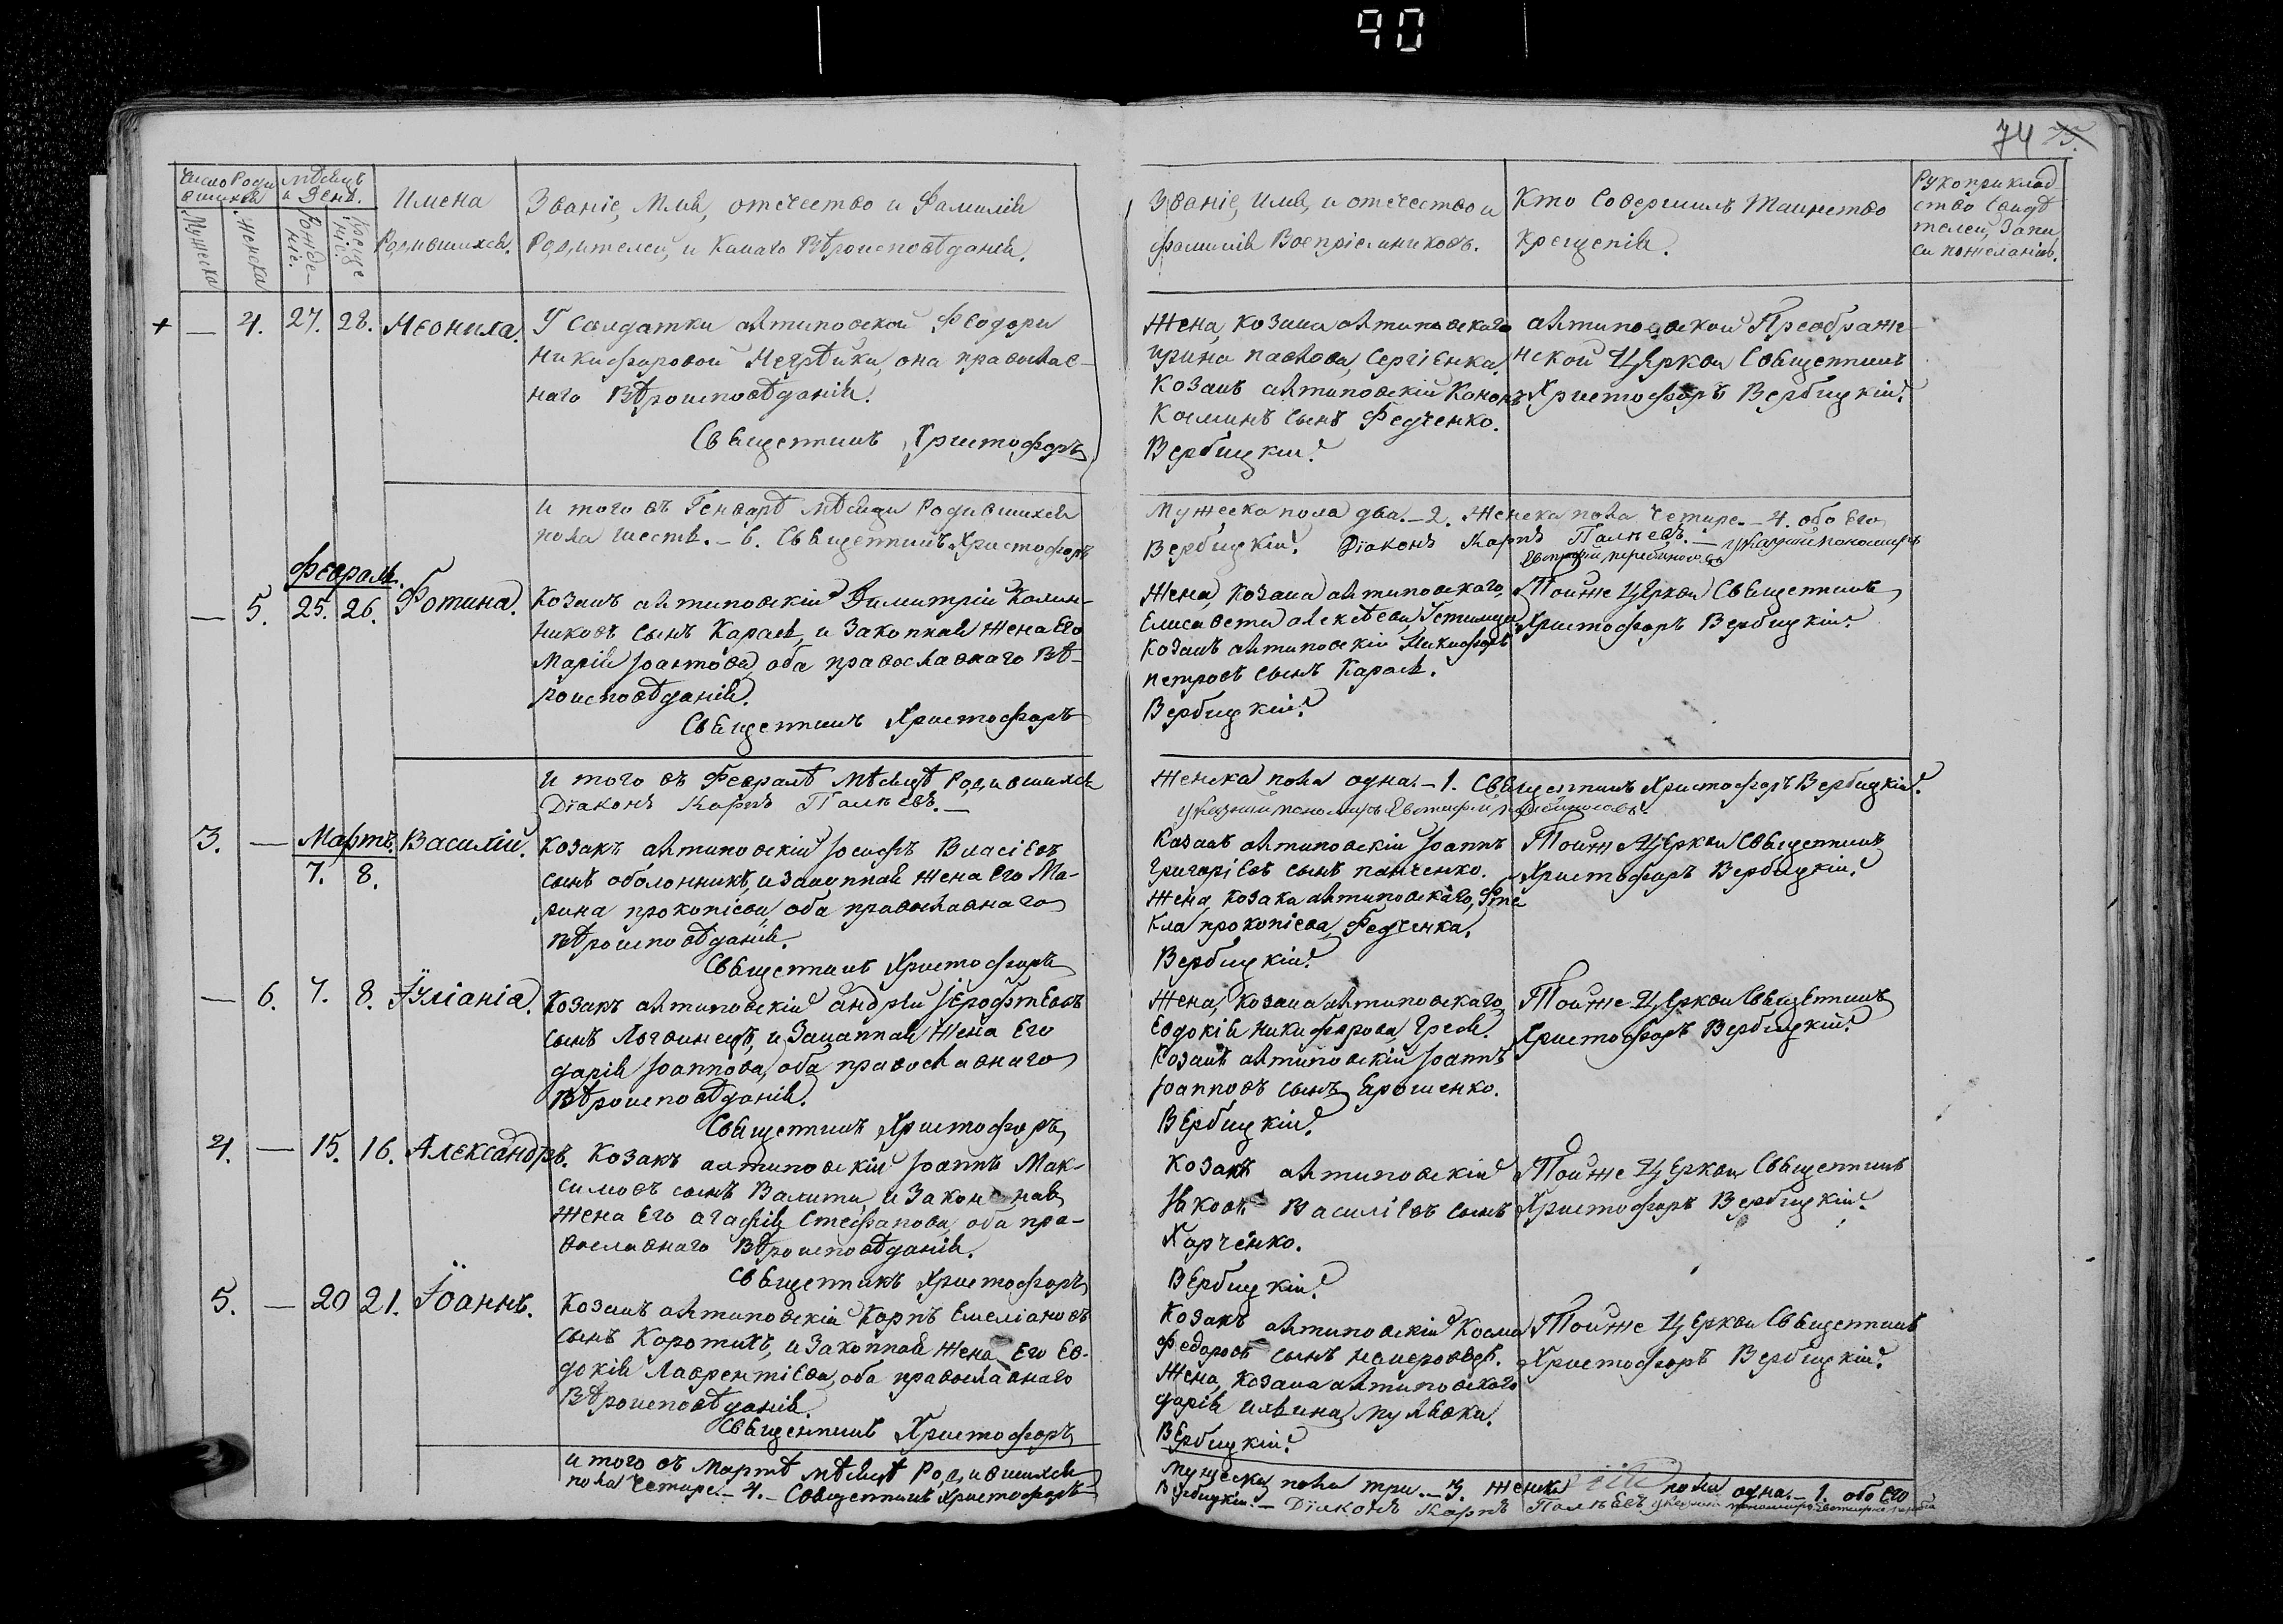 90
74 75.
Число Роди
вшихся
Мѣсяцъ
и День.
Мужеска
Женска
Рожде-
ніе.
Креще
ніе.
Имена
Родившихся.
Званіе, Имя, отечество и Фамилія
Родителей, и Какаго Вѣроисповѣданія.
Званіе, Имя, и отечество и
фамилія Воспріемниковъ.
Кто Совершилъ Таинство
Крещенія.
Рукоприклад
ство Свидѣ
телей, Запи
си по желанію.
+ — 4. 27. 28. Неонила.
У Солдатки антиповской Феодоры
Никифоровой Негрѣйки, она православ-
наго Вѣроисповѣданія.
Священникъ Христофоръ
Жена, козака антиповскаго
Ирина павлова, Сергіенка.
Козакъ антиповскій Кононъ
Косминъ сынъ Федченко.
Вербицкій.
антиповской Преображе
нской Церкви Священникъ
Христофоръ Вербицкій.
и того въ Генварѣ мѣсяцѣ Родившихся
пола шесть. — 6. Священникъ Христофоръ
Мужеска пола два. — 2. Женска пола четыре. — 4. обоего
Вербицкій. Діаконъ Карпъ Палѣевъ. — указний пономаръ
Февраль.
— 5. 25. 26. Фотина.
Козакъ антиповскій Димитрій Калин-
никовъ сынъ Карась, и Законная жена Его
Марія Іоаннова, оба православнаго Вѣ-
роисповѣданія.
Священникъ Христофоръ
Жена, козака антиповскаго,
Елисавета алексѣева,
Козакъ антиповскій Никифоръ
петровъ сынъ Карась.
Вербицкій.
Тойже Церкви Священникъ
Христофоръ Вербицкій.
и того въ Февралѣ мѣсяцѣ Родившихся
Діаконъ Карпъ Палѣевъ. —
Женска пола одна. — 1. Священникъ Христофоръ Вербицкій.
указний пономаръ
3. — Мартъ. Василій.
7. 8.
Козакъ антиповскій Іосифъ Власіевъ
сынъ оболонникъ, и законная жена Его Ма-
рина прокопіева, оба православнаго
вѣроисповѣданія.
Священникъ Христофоръ
Козакъ антиповскій Іоаннъ
Григоріевъ сынъ панченко.
Жена, козака антиповскаго, Фе
кла прокопіева, Федченка.
Вербицкій.
Тойже Церкви Священникъ
Христофоръ Вербицкій.
— 6. 7. 8. Іуліанія.
Козакъ антиповскій андрей Іерофѣевъ
сынъ Логвинецъ, и Законная жена Его
дарія Іоаннова, оба православнаго
Вѣроисповѣданія.
Священникъ Христофоръ
Жена, козака антиповскаго,
Евдокія никифорова,
Козакъ антиповскій Іоаннъ
Іоанновъ сынъ Ярошенко.
Вербицкій.
Тойже Церкви Священникъ
Христофоръ Вербицкій.
4. — 15. 16. Александръ.
Козакъ антиповскій Іоаннъ Мак-
симовъ сынъ Валита, и Законная
жена Его агафія Стефанова, оба пра-
вославнаго Вѣроисповѣданія.
Священникъ Христофоръ
Козакъ антиповскій
Яковъ Василіевъ сынъ
Харченко.
Вербицкій.
Тойже Церкви Священникъ
Христофоръ Вербицкій.
5. — 20 21. Іоаннъ.
Козакъ антиповскій Карпъ Емеліановъ
сынъ Коротихъ, и Законная жена Его Ев-
докія Лаврентіева, оба православнаго
Вѣроисповѣданія.
Священникъ Христофоръ
Козакъ антиповскій Косма
Федоровъ сынъ
Жена, козака антиповскаго
дарія ильина,
Вербицкій.
Тойже Церкви Священникъ
Христофоръ Вербицкій.
и того въ Мартѣ мѣсяцѣ Родившихся
пола четыре. — 4. — Священникъ Христофоръ
Мужеска пола три. — 3. Женска пола одна. — 1. обоего
Вербицкій. — Діаконъ Карпъ Палѣевъ